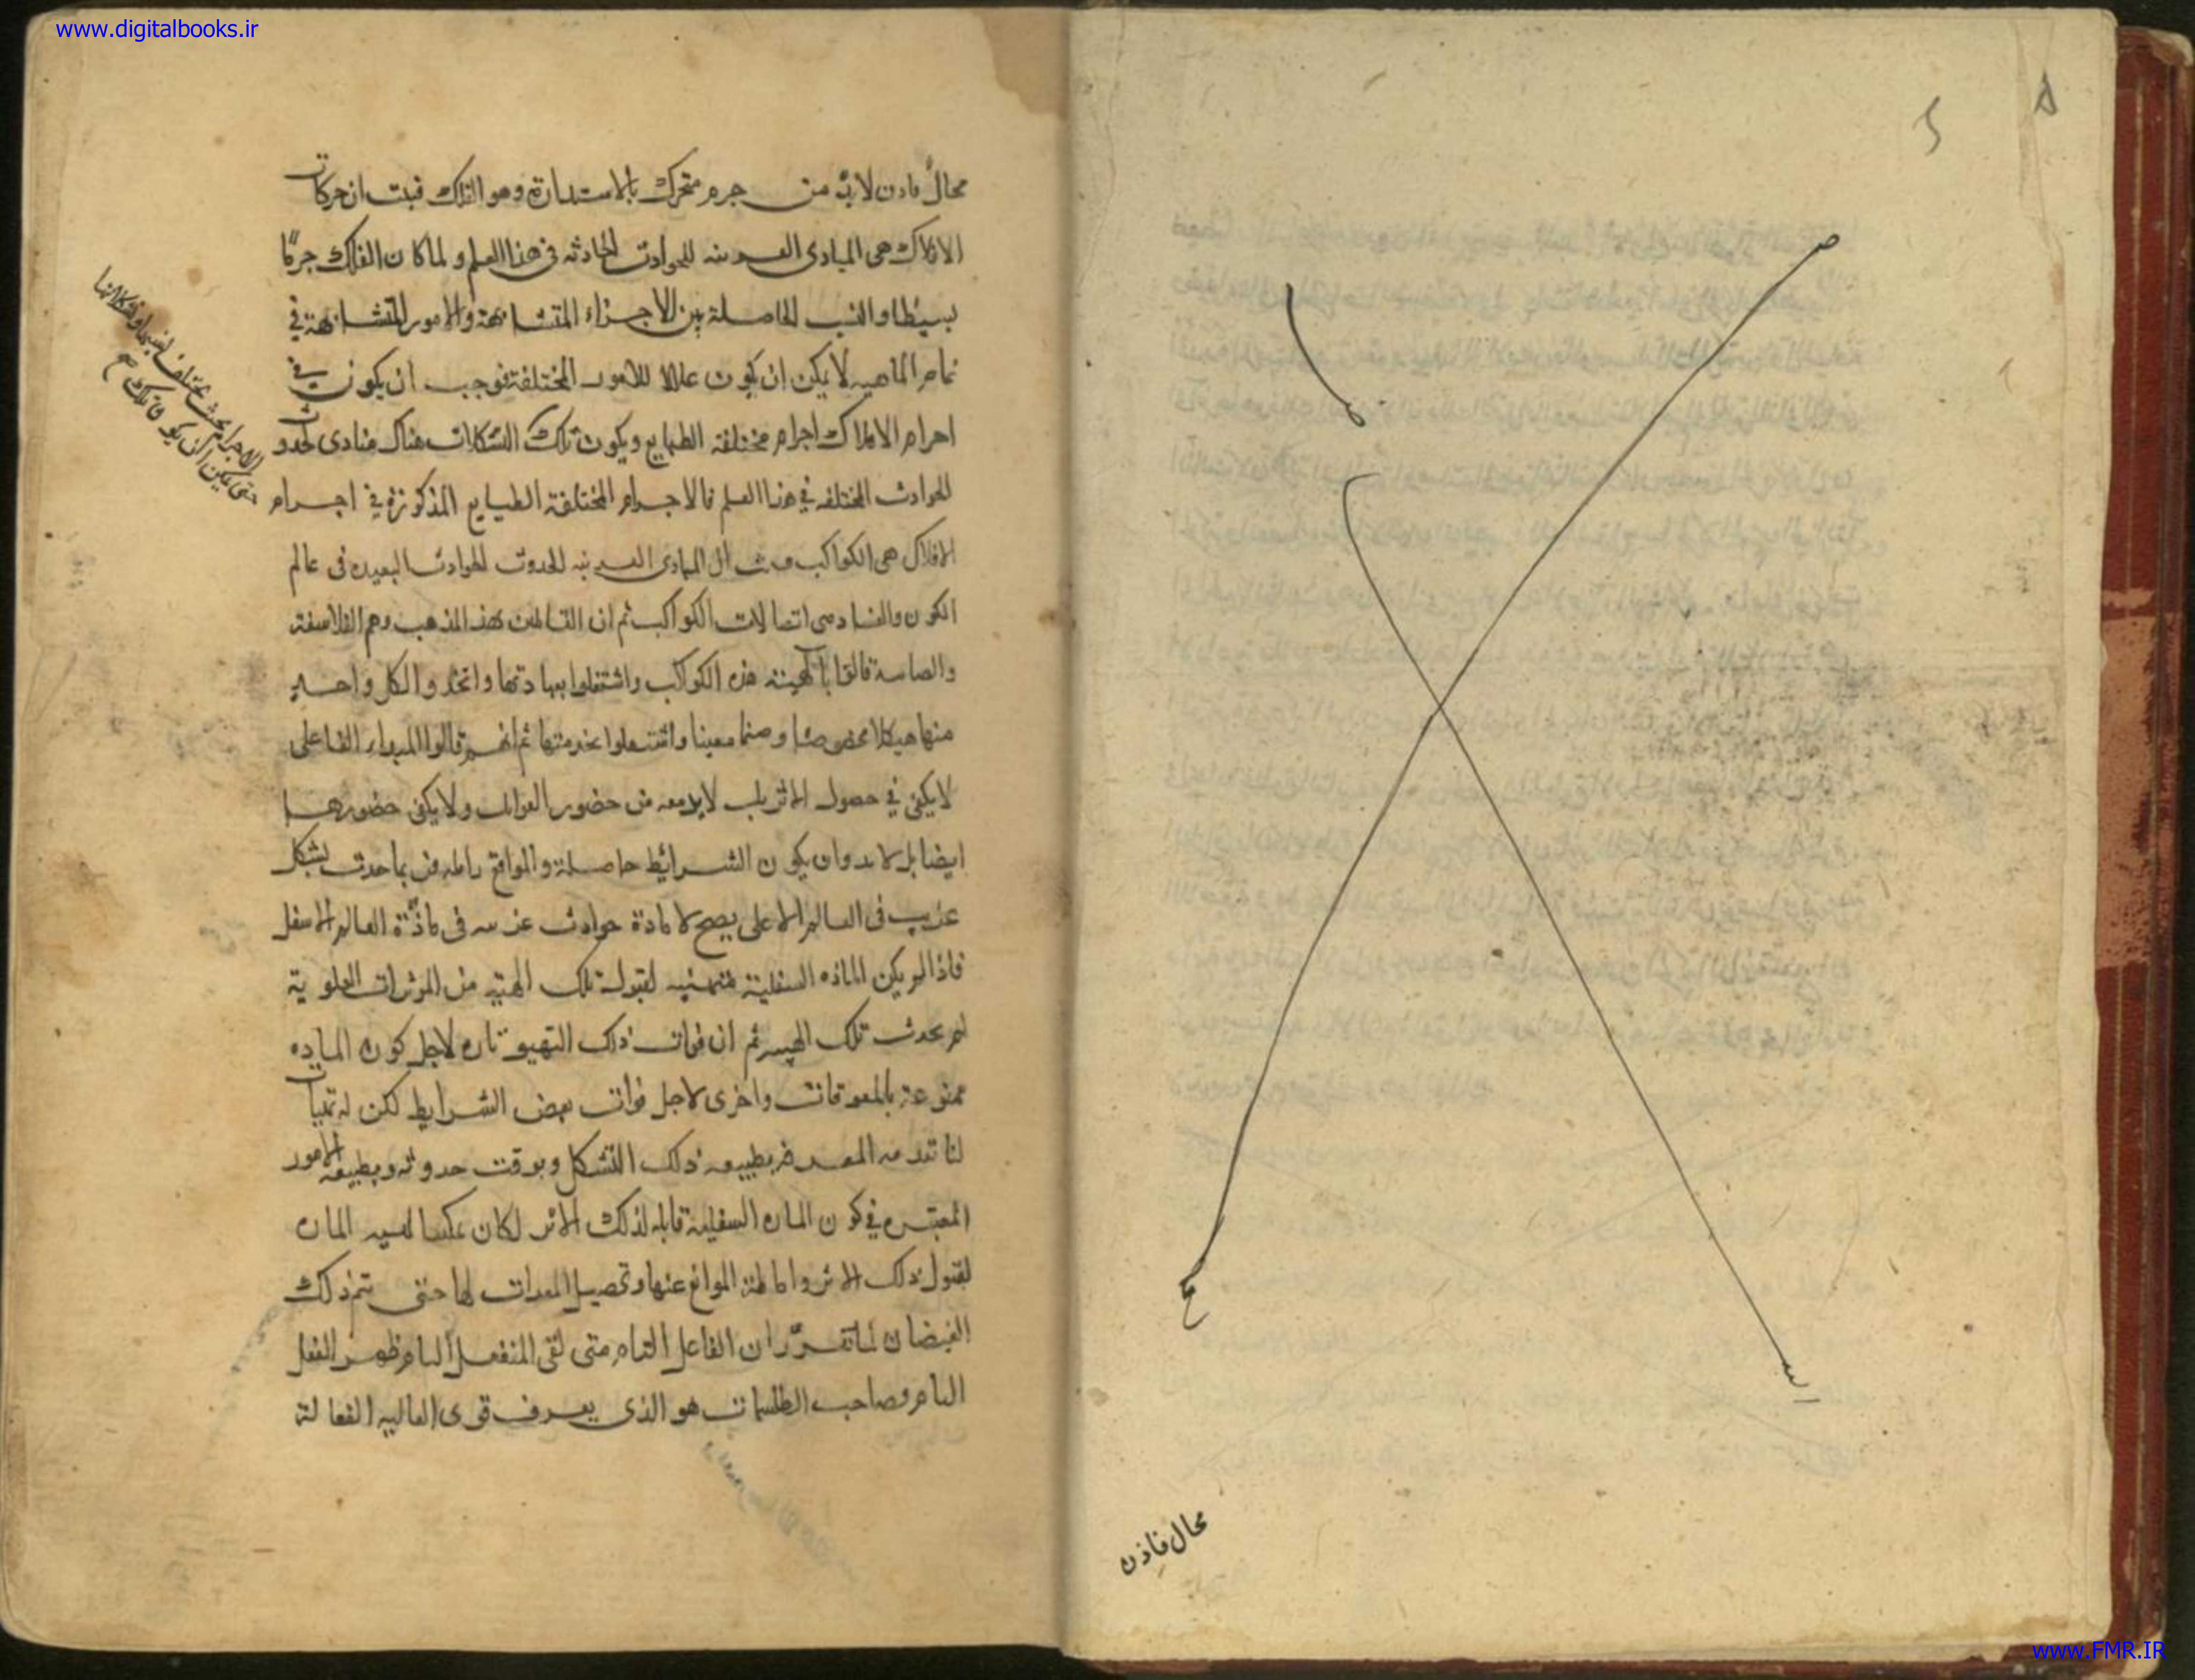 www.digitalbooks.ir
محال فاذن
محال فاذن لابد من جرم متحرك بالاستدارة وهو الفلك فثبت ان حركات
الافلاك هى المبادى القريبه للحوادث الحادثه فى هذا العلم ولما كان الفلك جرمًا
بسيطا والنسب الحاصلة بين الاجزاء المتشابهة والامور المتشابهة في
تمام الماهيه لا يمكن ان يكون عللا للامور المختلفة فوجب ان يكون في
اجرام الافلاك اجرام مختلفه الطبايع ويكون تلك التشكلات هناك مبادى لحدوث
الحوادث المختلفه في هذا العلم فالاجرام المختلفة الطبايع المذكوزة في اجرام
الافلاك هى الكواكب فثبت ان المبادى القريبه لحدوث الحوادث البعيده فى عالم
الكون والفساد هى اتصالات الكواكب ثم ان القائلين بهذ المذهب وهم الفلاسفة
والصابية قالوا بالهيته هذه الكواكب واشتغلوا بعبادتها واتخذوا لكل واحد
منها هيكلا مخصوصا وصنما معينا واشتغلوا بخدمتها ثم انهم قالوا المبداء الفاعلى
لا يكفي في حصول الاثر بل لابد معه من حضور القوابل ولا يكفى حضورها
ايضا بل لابد وان يكون الشرائط حاصلة والموانع زايله فربما حدث بشكل
غريب فى العالم الاعلى يصح لافادة حوادث غريبه فى مادّة العالم الاسفل
فاذا لم يكن الماده السفلية متهيئه لقبول تلك الهيئه من المؤثرات العلوية
لم يحدث تلك الهيئه ثم ان فوات ذلك التهيؤ تاره لاجل كون الماده
ممنوعة بالمعوقات واخرى لاجل فوات بعض الشرايط لكن لو تهيات
لنا تقدمه المعرفه بطبيعه ذلك التشكل وبوقت حدوثه وبطبيعه الامور
المعتبره في كون الماده السفلية قابله لذلك الاثر لكان يمكننا تهيئه الماده
لقبول ذلك الاثر واماطة الموانع عنها وتحصيل المعدات لها حتى يتم ذلك
الفيضان لما تقرّر ان الفاعل التام متى لقى المنفعل التام ظهر الفعل
التام وصاحب الطلسمات هو الذى يعرف قوى العاليه الفعالة
الاجرام بحيث يختلف نسبها وتشكلاتها
حتى يمكن ان يكون تلك صح
www.FMR.IR